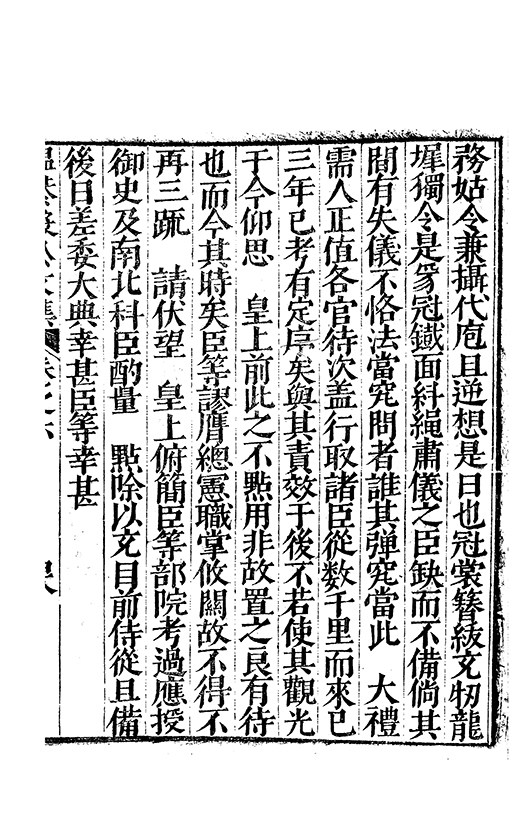 務姑令兼攝代庖且逆想是日也冠裳簪紱充牣龍
墀獨令是豸冠鐵面糾繩肅儀之臣缺而不備倘其
間有失儀不恪法當究問者誰其弹究當此　大禮
需人正值各官待次盖行取諸臣從数千里而來已
三年已考有定序矣與其責效于後不若使其觀光
于今仰思　皇上前此之不㸃用非故置之良有待
也而今其時矣臣等謬膺總憲職掌攸關故不得不
再三䟽　請伏望　皇上俯簡臣等部院考過應授
御史及南北科臣酌量　㸃除以充目前侍從且備
後日差委大典幸甚臣等幸甚
溫恭毅公文集　卷之六